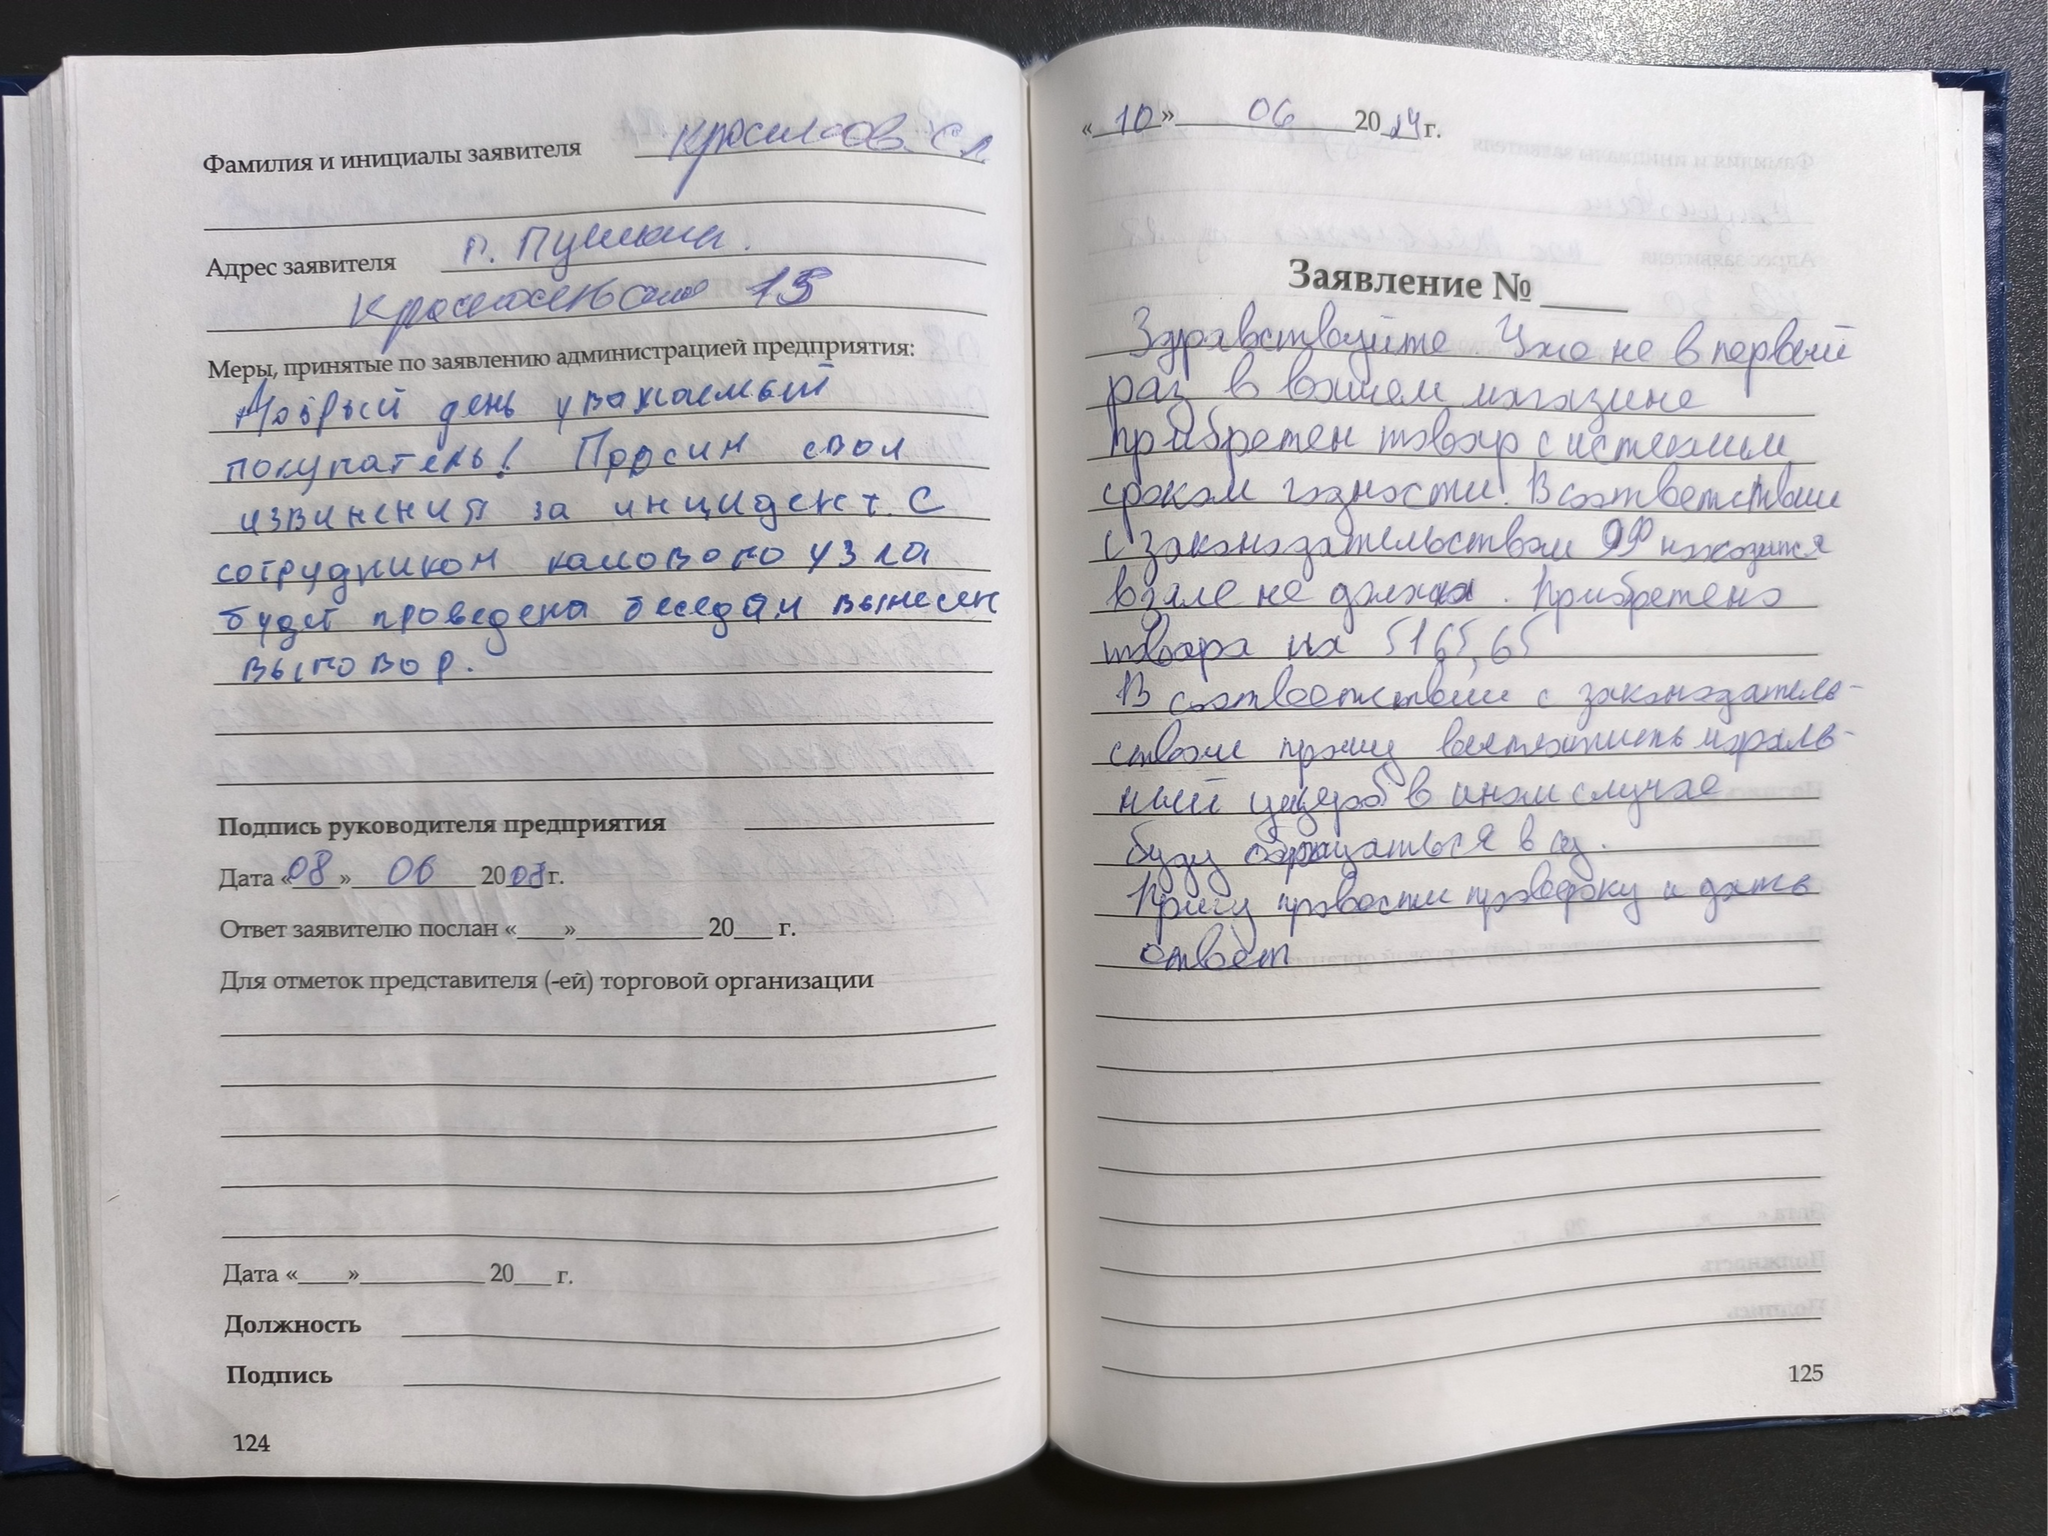 Фамилия и инициалы заявителя
Адрес заявителя г. Пушкин.
15
Меры, принятые по заявлению администрацией предприятия:
Добрый день уважаемый
покупатель! Просим свои
извинения за инцидент. С
сотрудником кассового узла
будет проведена беседа и вынесен
выговор.
Подпись руководителя предприятия
Дата «08» 06 20 г.
Ответ заявителю послан «___»__________ 20___ г.
Для отметок представителя (-ей) торговой организации
Дата «___»__________ 20___ г.
Должность
Подпись
124
«10» 06 2024 г.
Заявление № _____
Здравствуйте. Уже не в первый
раз в вашем магазине
прибретен товар с истекшим
сроком годности. В соответствии
с законодательством РФ находится
в зале не должна. Прибретено
товара на 5165,65
В соответствии с законодатель-
ством прошу восполнить мораль-
ный ущерб в ином случае
буду обращаться в суд.
Прошу провести проверку и дать
ответ
125